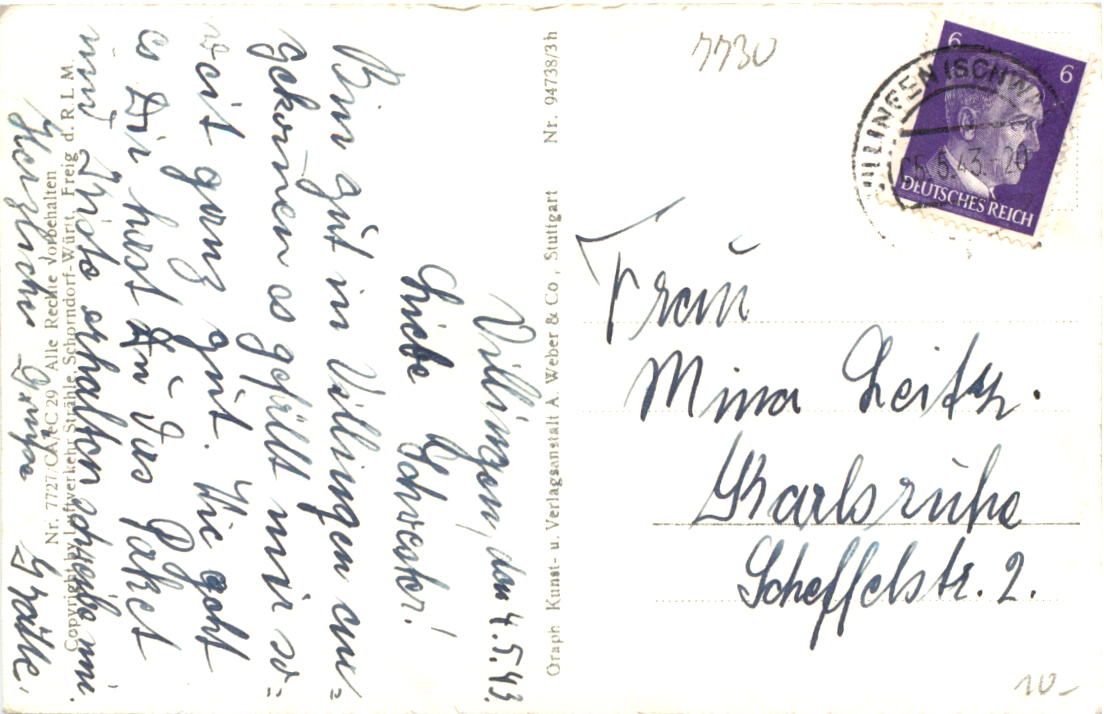 Villingen, den 4.5.43.
Liebe Schwester!
Bin gut in Villingen an=
gekommen es gefällt mir so=
weit ganz gut. Wie geht
es Dir hast Du das Paket
und Kiste erhalten schreibe mir.
Herzliche Grüße
Nr. 7727/CA/C 29 Alle Rechte vorbehalten
Copyright by Luftverkehr Strähle, Schorndorf-Württ. Freig d. R. L. M.
Graph Kunst- u. Verlagsanstalt A. Weber & Co, Stuttgart Nr. 94738/3h
7730
6 6
VILLINGEN (SCHW
5.5.43.-20
DEUTSCHES REICH
Frau
Mina Leitz.
Karlsruhe
Scheffelstr. 2.
10-